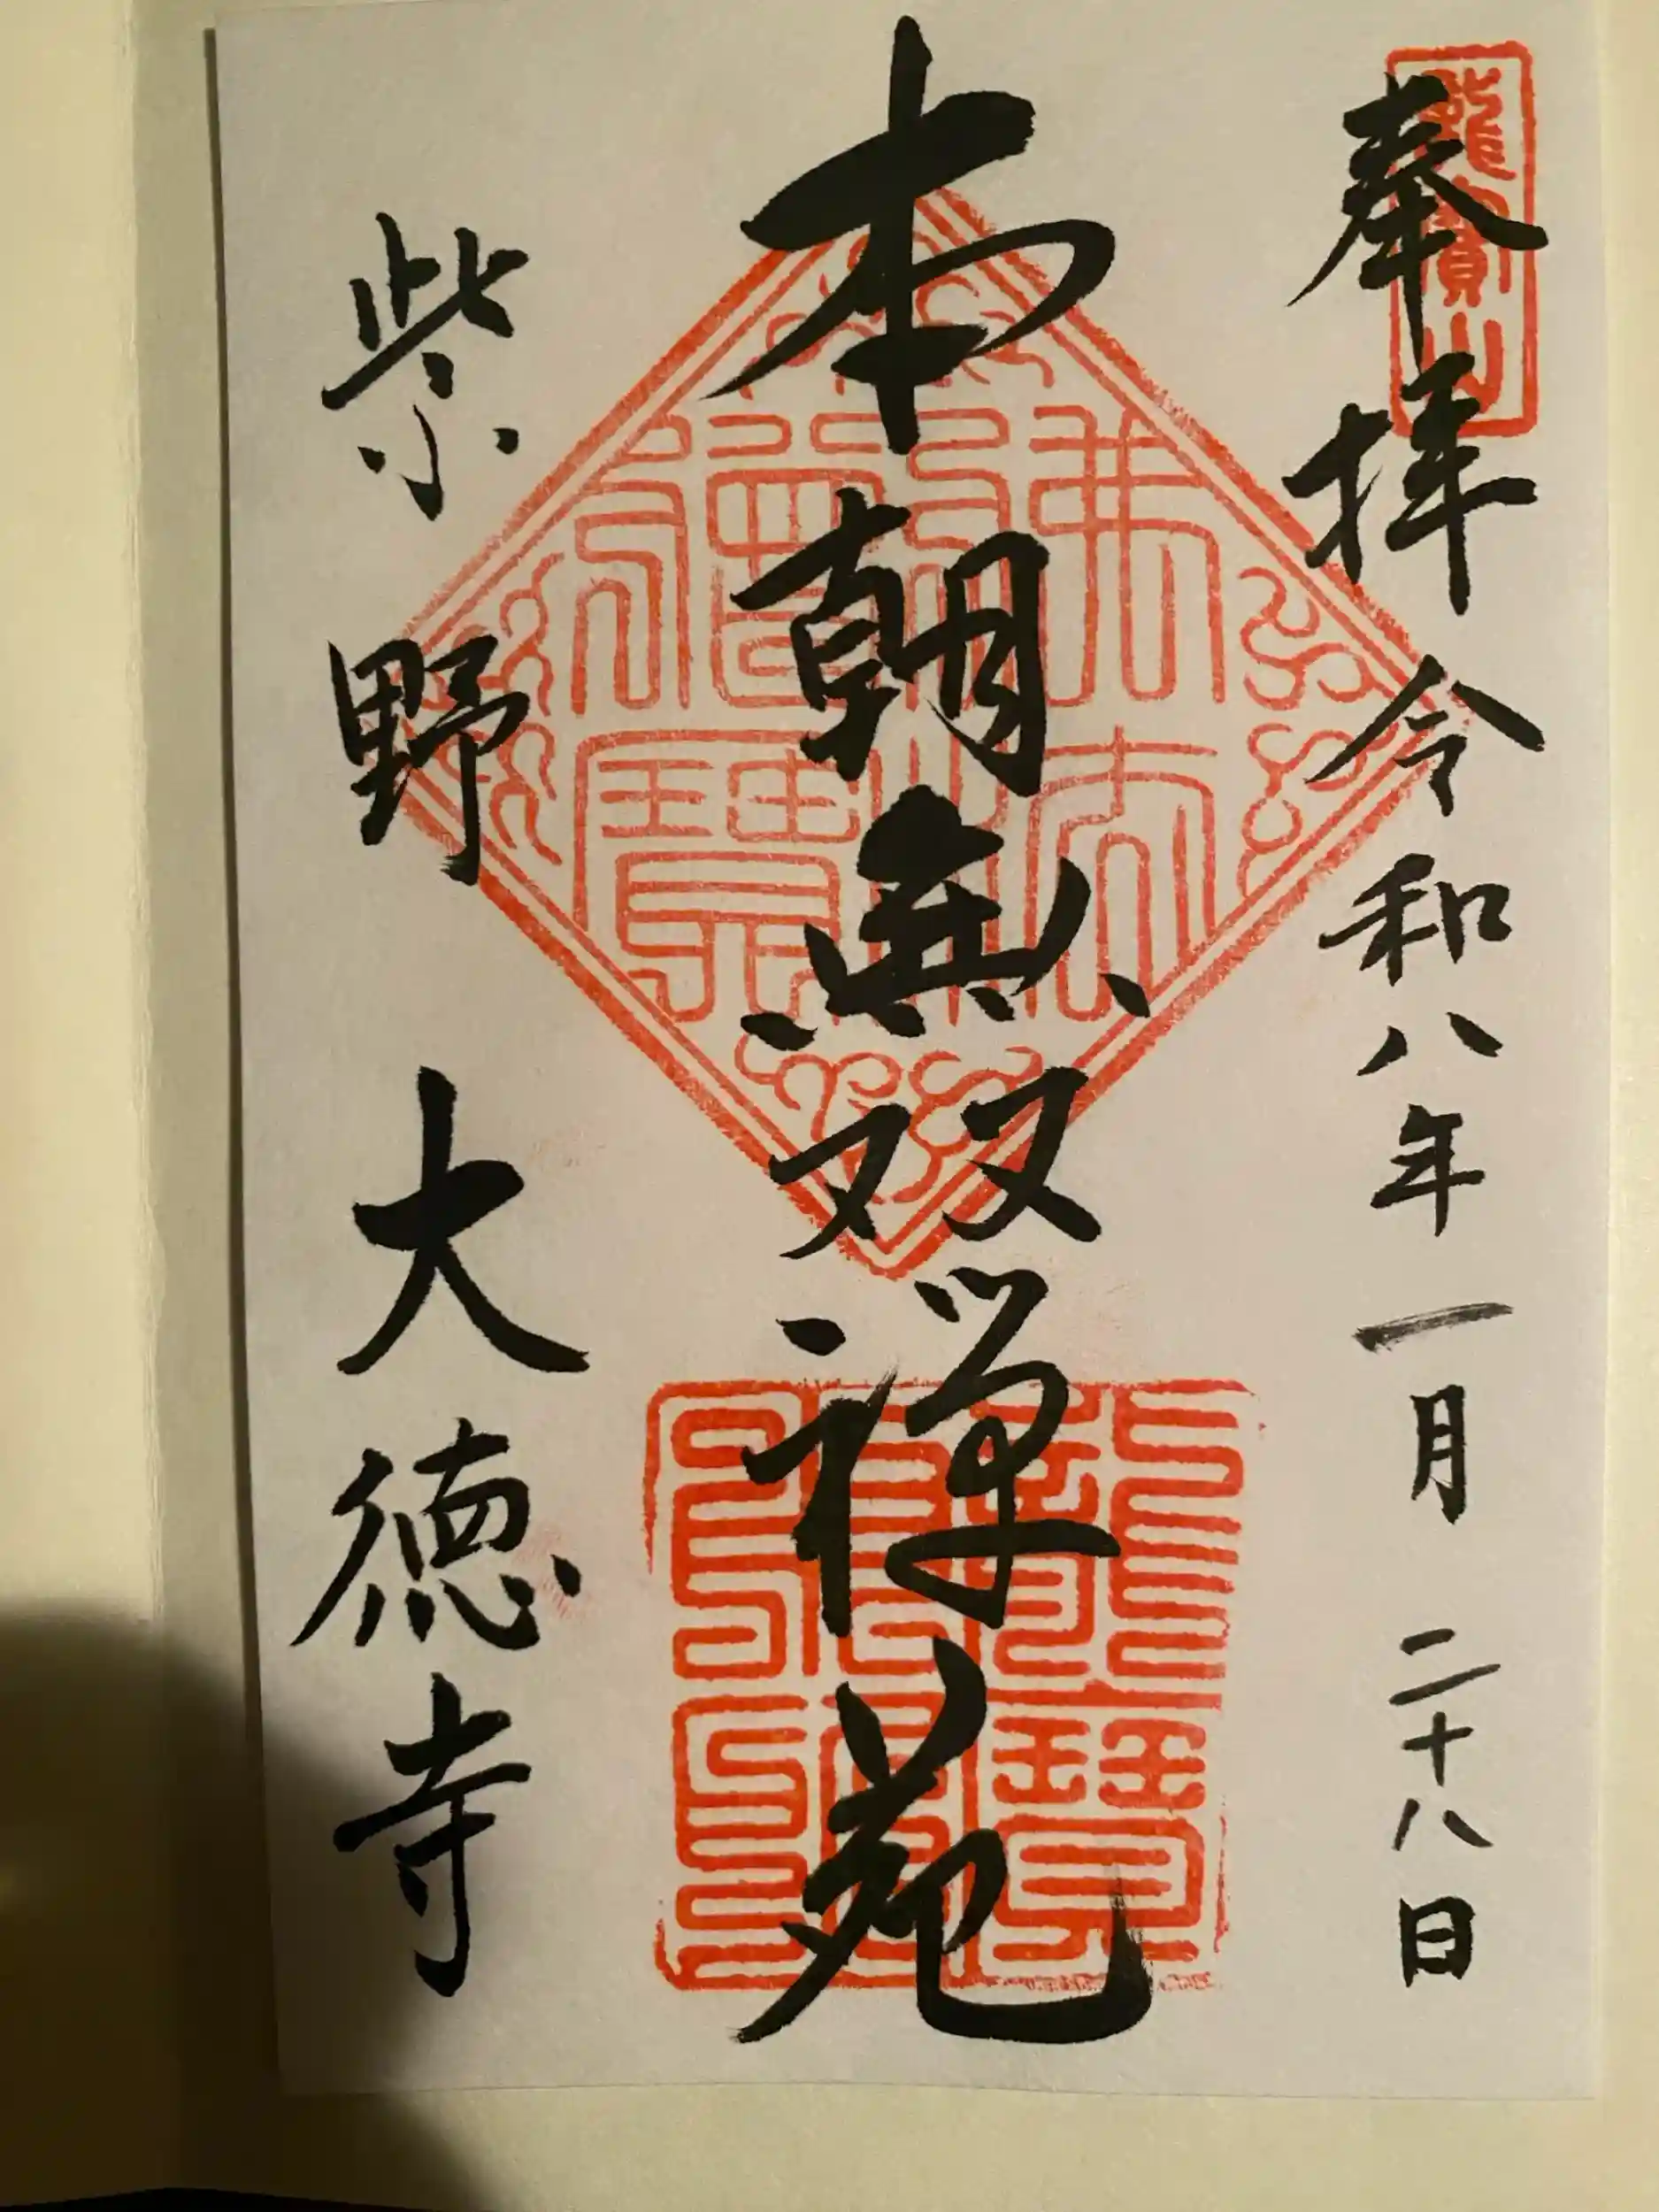 奉拝 令和八年一月二十八日
龍寶山
本朝無双禅苑
佛法僧寶
紫野 大徳寺